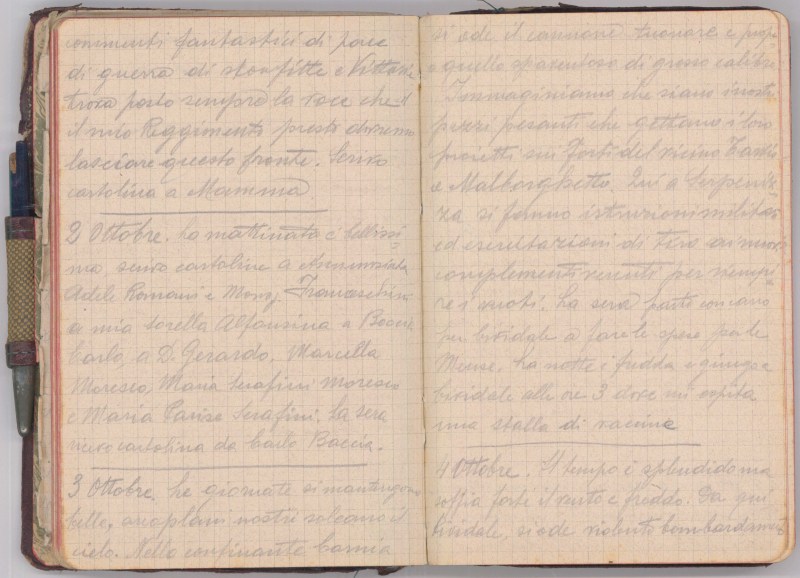 commenti fantastici di pace
di guerra di sconfitte e Vittorie
trova posto sempre la voce che
il mio Reggimento presto dovremo
lasciare questo fronte. Scrivo
cartolina a Mamma
2 Ottobre. La mattinata è bellissi=
ma, scrivo cartoline a Annunziata
Adele Romani e Franceschina
a mia sorella Alfonsina a Boccia
Carlo, a D. Gerardo. Marcella
Moresco, Maria Serafini Moresco
e Maria Serafini. La sera
ricevo cartolina da Carlo Boccia.
3 Ottobre. Le giornate si mantengono
belle, aroplani nostri solcano il
cielo. Nella confinante Carnia
si ode il cannone tuonare e prop
o quello spaventoso di grosso calibro
Immaginiamo che siano i nostri
pezzi pesanti che gettano i loro
proietti sui Forti del vicino
e Malborghetto. Qui a Serpeniz=
za si fanno istruzioni militari
ed esercitazioni di Tiro ai nuovi
complementi venuti per riempi=
re i vuoti. La sera parto con carro
per Cividale a fare le spese per le
Mense. La notte è fredda e giungo a
Cividale alle ore 3 dove mi ospita
una stalla di vaccine
4 Ottobre. Il tempo è splendido ma
soffia forte il vento e freddo. Da qui
Cividale, si ode violento bombardamento